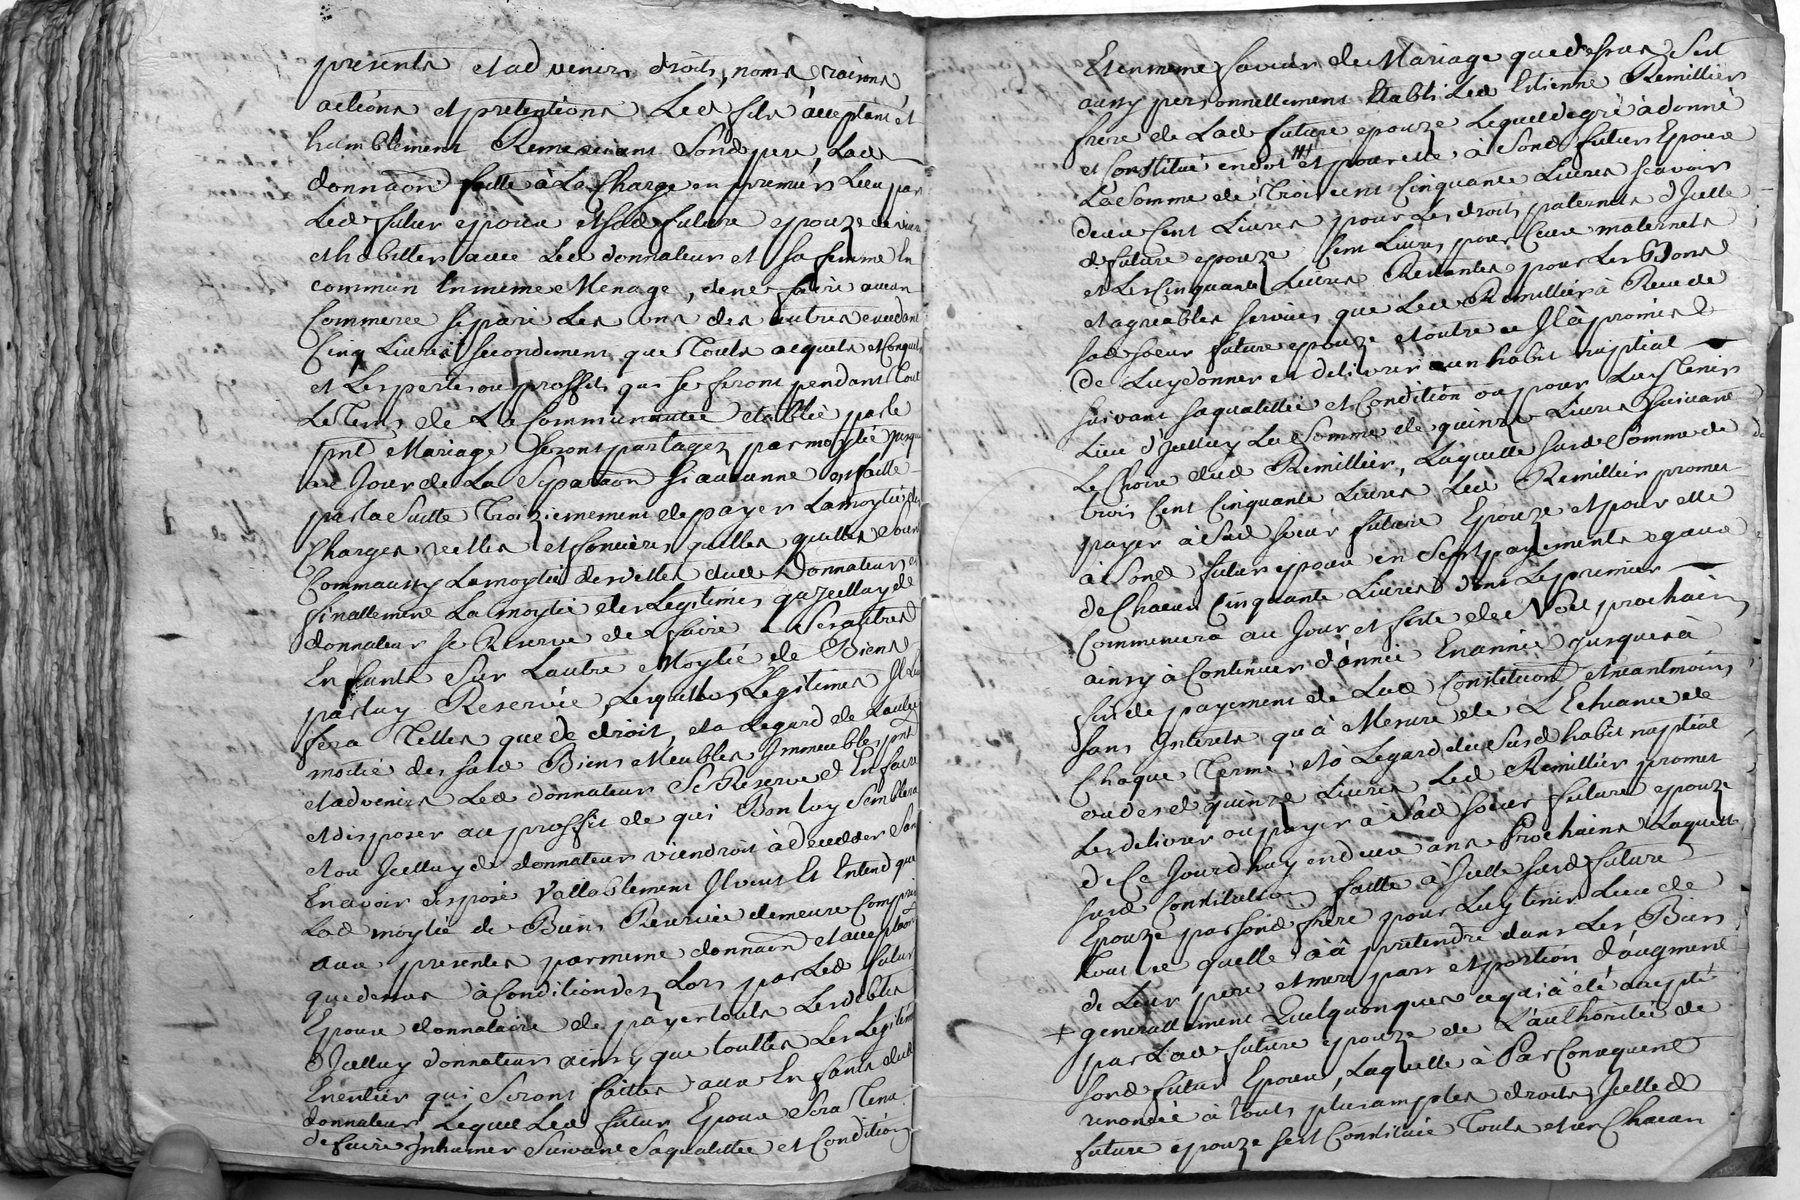 presents et advenirs droits, noms, raisons
actions et pretentions Led fils acceptant et
humblement Remerciant Sond pere, Lad
donnaon faitte à La Charge en premiers Lieu par
Led futur epoux et sad future epouze de vivre
et habitter avec Led donnateur et sa femme en
commun en meme Menage, de ne faire aucun
Commerce separé Les uns des autres excedant
Cinq Livres secondement que Touts acquets et Conquets
et Les pertes ou proffits qui se feront pendant Tout
Le Tems de La Communauté etablie par le
pnt Mariage seront partagez par moytié jusques
au Jour de La Separaon si aucunne est faitte
par la Suitte Troiziemement de payer La moytié des
Charges reelles et foncieres, quittes quelles soient
Comm aussy La moytié des dettes dud Donnateur et
finallement La moytié des Legitimes qu'Jcelluy d
donnateur se Reserve de faire a Ses autres
Enfants Sur Lautre Moytié de Biens
par luy Reservée, Lesquelles Legitimes Il
fera Telles que de droit, et a Legard de Lautre
moitié de sesd Biens Meubles Immeubles pnts
et advenirs Led donnateur Se Reserve d'En faire
et disposer au proffit de qui Bon luy Semblera
et ou Jcelluy d donnateur viendroit à deceder Sans
En avoir disposé Vallablement Il veut Et Entend que
Lad moytié de Biens Reservée demeure Comprise
aux presentes par meme donnaon et acceptaon
que dessus à Condition dez Lors par Led futur
Epoux donnataire de payer touts Les debtes
d'Jcelluy donnateur ainsy que touttes Les Legitimes
En entier qui Seront faittes aux Enfants dud
donnateur, Lequel Led futur Epoux Sera Tenu
de faire Inhumer Suivant Sa qualitée et Condition
Et en meme faveur de Mariage que dessus Sest
aussy personnellement Etabli Led Etienne Remillier
frere de Lad future epouze Lequel de gré à donné
et Constitué en dot et pour elle à Sond futur Epoux
La Somme de Trois cent Cinquante Livres scavoir
deux Cent Livres pour Les droits paternels d'Jcelle
d future epouze Cent Livres pour Ceux maternels
et Les Cinquante Livres Restantes pour Les Bons
et agreables services que Led Remillier à Receu de
sad soeur future epouze et outre ce Il à promis
de Luy donner et delivrer un habit nuptial
suivant sa qualitée et Condition ou pour Luy Tenir
Lieu d'Jcelluy La Somme de quinze Livres suivant
Le Choix dud Remillier, Laquelle susd Somme de
trois Cent Cinquante Livres Led Remillier promet
payer à Sad soeur future Epouze et pour elle
à Sond futur epoux en Sept payements egaux
de Chacun Cinquante Livres dont Le premier
Commencera au Jour et feste de Noel prochain
ainsy à Continuer d'année En année jusques à
fin de payement de Lad Constitution et neantmoins
sans Interets qu'à Mesure de L'Echeance de
Chaque Terme, et à Legard du Susd habit nuptial
ou desd quinze Livres Led Remillier promet
Les delivrer ou payer à Sad soeur future epouze
de Ce Jourdhuy en deux ans Prochains Laquelle
susd Constitution faitte à Jcelle susd future
Epouze par sond frere pour Luy tenir Lieu de
tout ce quelle à à pretendre dans Les Biens
de Leur pere et mere part et portion d'augment
+ generallement Quelquonques ce qui à été accepté
par Lad future epouze de L'authoritée de
sond futur Epoux, Laquelle à Par Consequent
renoncé à touts plus amples droits, Jcelle d
future epouze sest Constituée Touts et un Chacun